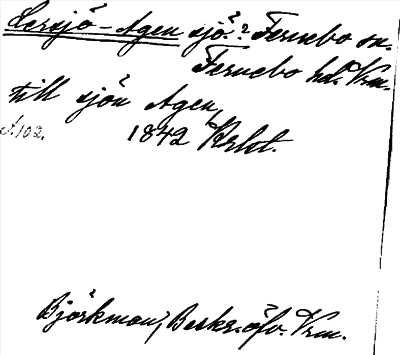 Lersjö-Agen sjö? Fernebo sn.
Fernebo hd. Vrm.
till sjön Agen,
A102. 1842 Krlst.
Björkman, Beskr. öfv. Vrm.